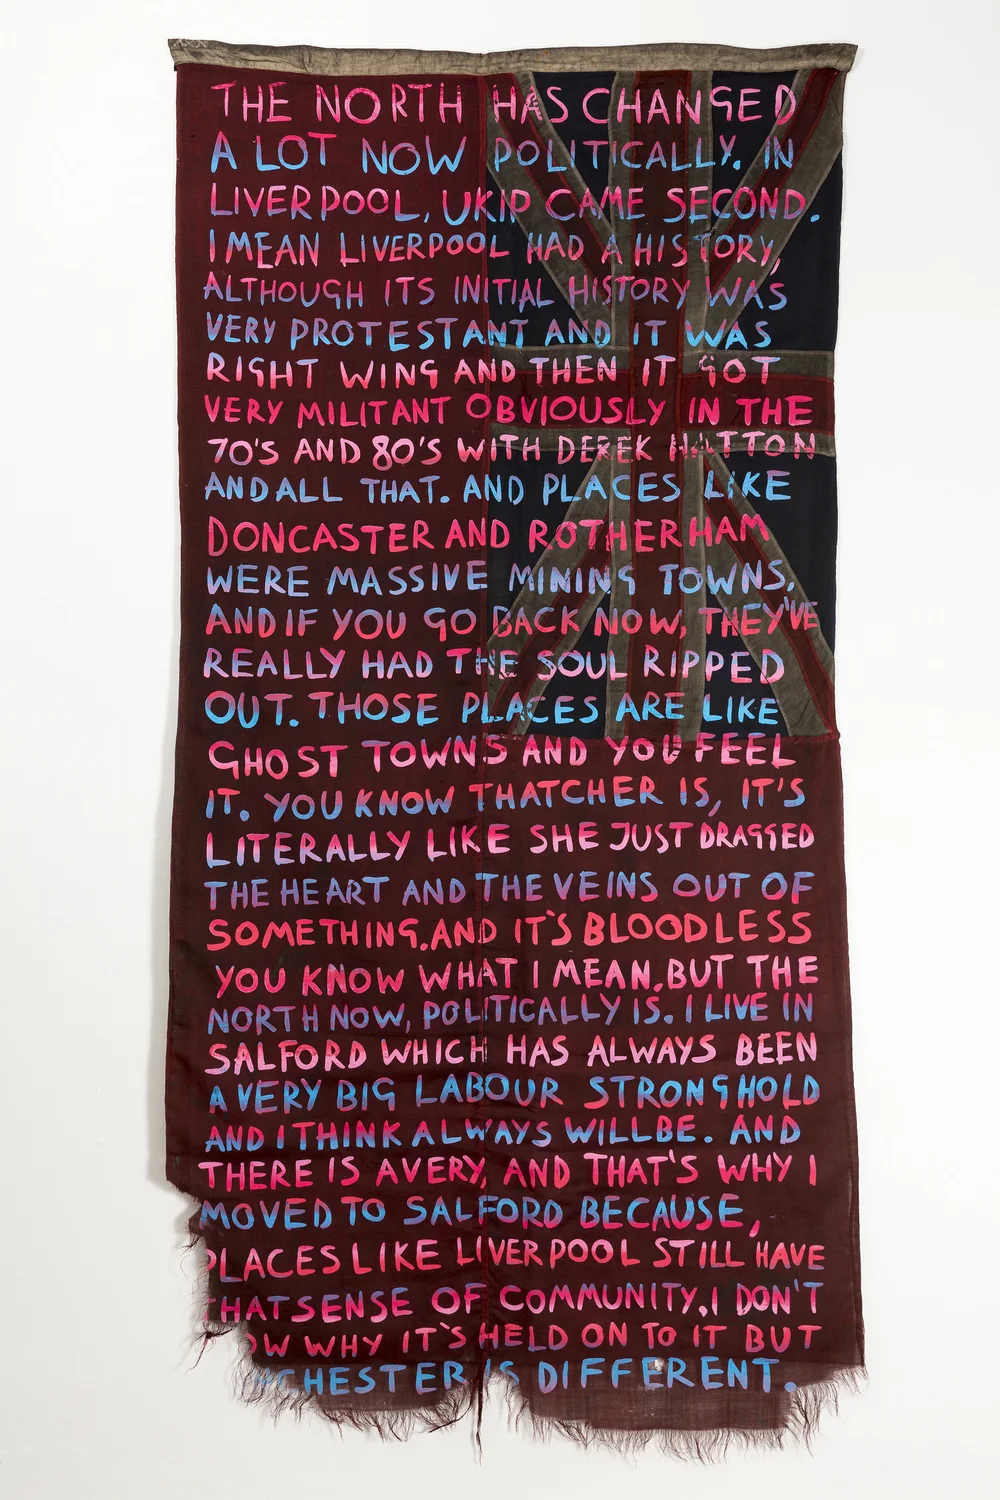 THE NORTH HAS CHANGED
A LOT NOW POLITICALLY. IN
LIVERPOOL, UKIP CAME SECOND.
I MEAN LIVERPOOL HAD A HISTORY,
ALTHOUGH ITS INITIAL HISTORY WAS
VERY PROTESTANT AND IT WAS
RIGHT WING AND THEN IT GOT
VERY MILITANT OBVIOUSLY IN THE
70'S AND 80'S WITH DEREK HATTON
AND ALL THAT. AND PLACES LIKE
DONCASTER AND ROTHERHAM
WERE MASSIVE MINING TOWNS,
AND IF YOU GO BACK NOW, THEY'VE
REALLY HAD THE SOUL RIPPED
OUT. THOSE PLACES ARE LIKE
GHOST TOWNS AND YOU FEEL
IT. YOU KNOW THATCHER IS, IT'S
LITERALLY LIKE SHE JUST DRAGGED
THE HEART AND THE VEINS OUT OF
SOMETHING. AND IT'S BLOODLESS
YOU KNOW WHAT I MEAN. BUT THE
NORTH NOW, POLITICALLY IS. I LIVE IN
SALFORD WHICH HAS ALWAYS BEEN
A VERY BIG LABOUR STRONGHOLD
AND I THINK ALWAYS WILL BE. AND
THERE IS A VERY, AND THAT'S WHY I
MOVED TO SALFORD BECAUSE,
PLACES LIKE LIVERPOOL STILL HAVE
THAT SENSE OF COMMUNITY. I DON'T
OW WHY IT'S HELD ON TO IT BUT
CHESTER IS DIFFERENT.